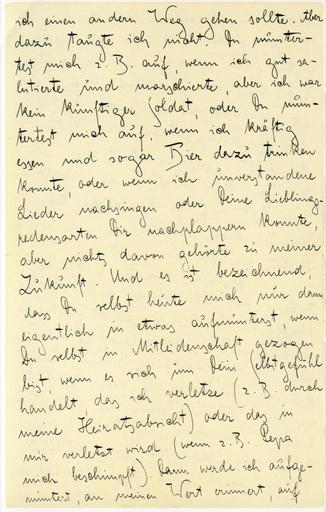 ich einen andern Weg gehen sollte. Aber
dazu taugte ich nicht. Du munter-
test mich z. B. auf, wenn ich gut sa-
lutierte und marschierte, aber ich war
kein künftiger Soldat, oder Du mun-
tertest mich auf, wenn ich kräftig
essen und sogar Bier dazu trinken
konnte, oder wenn ich unverstandene
Lieder nachsingen oder Deine Lieblings-
redensarten Dir nachplappern konnte,
aber nichts davon gehörte zu meiner
Zukunft. Und es ist bezeichnend,
dass Du selbst heute mich nur dann
eigentlich in etwas aufmunterst, wenn
Du selbst in Mitleidenschaft gezogen
bist, wenn es sich um Dein Selbstgefühl
handelt, das ich verletze (z. B. durch
meine Heiratsabsicht) oder das in
mir verletzt wird (wenn z. B. Pepa
mich beschimpft). Dann werde ich aufge-
muntert, an meinen Wert erinnert, auf